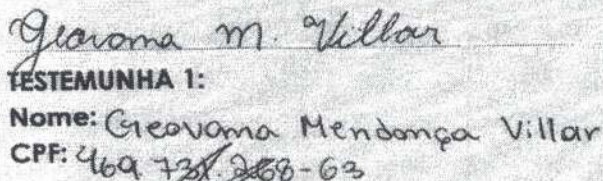 Geovama M. Villar
TESTEMUNHA 1:
Nome: Geovama Mendonça Villar
CPF: